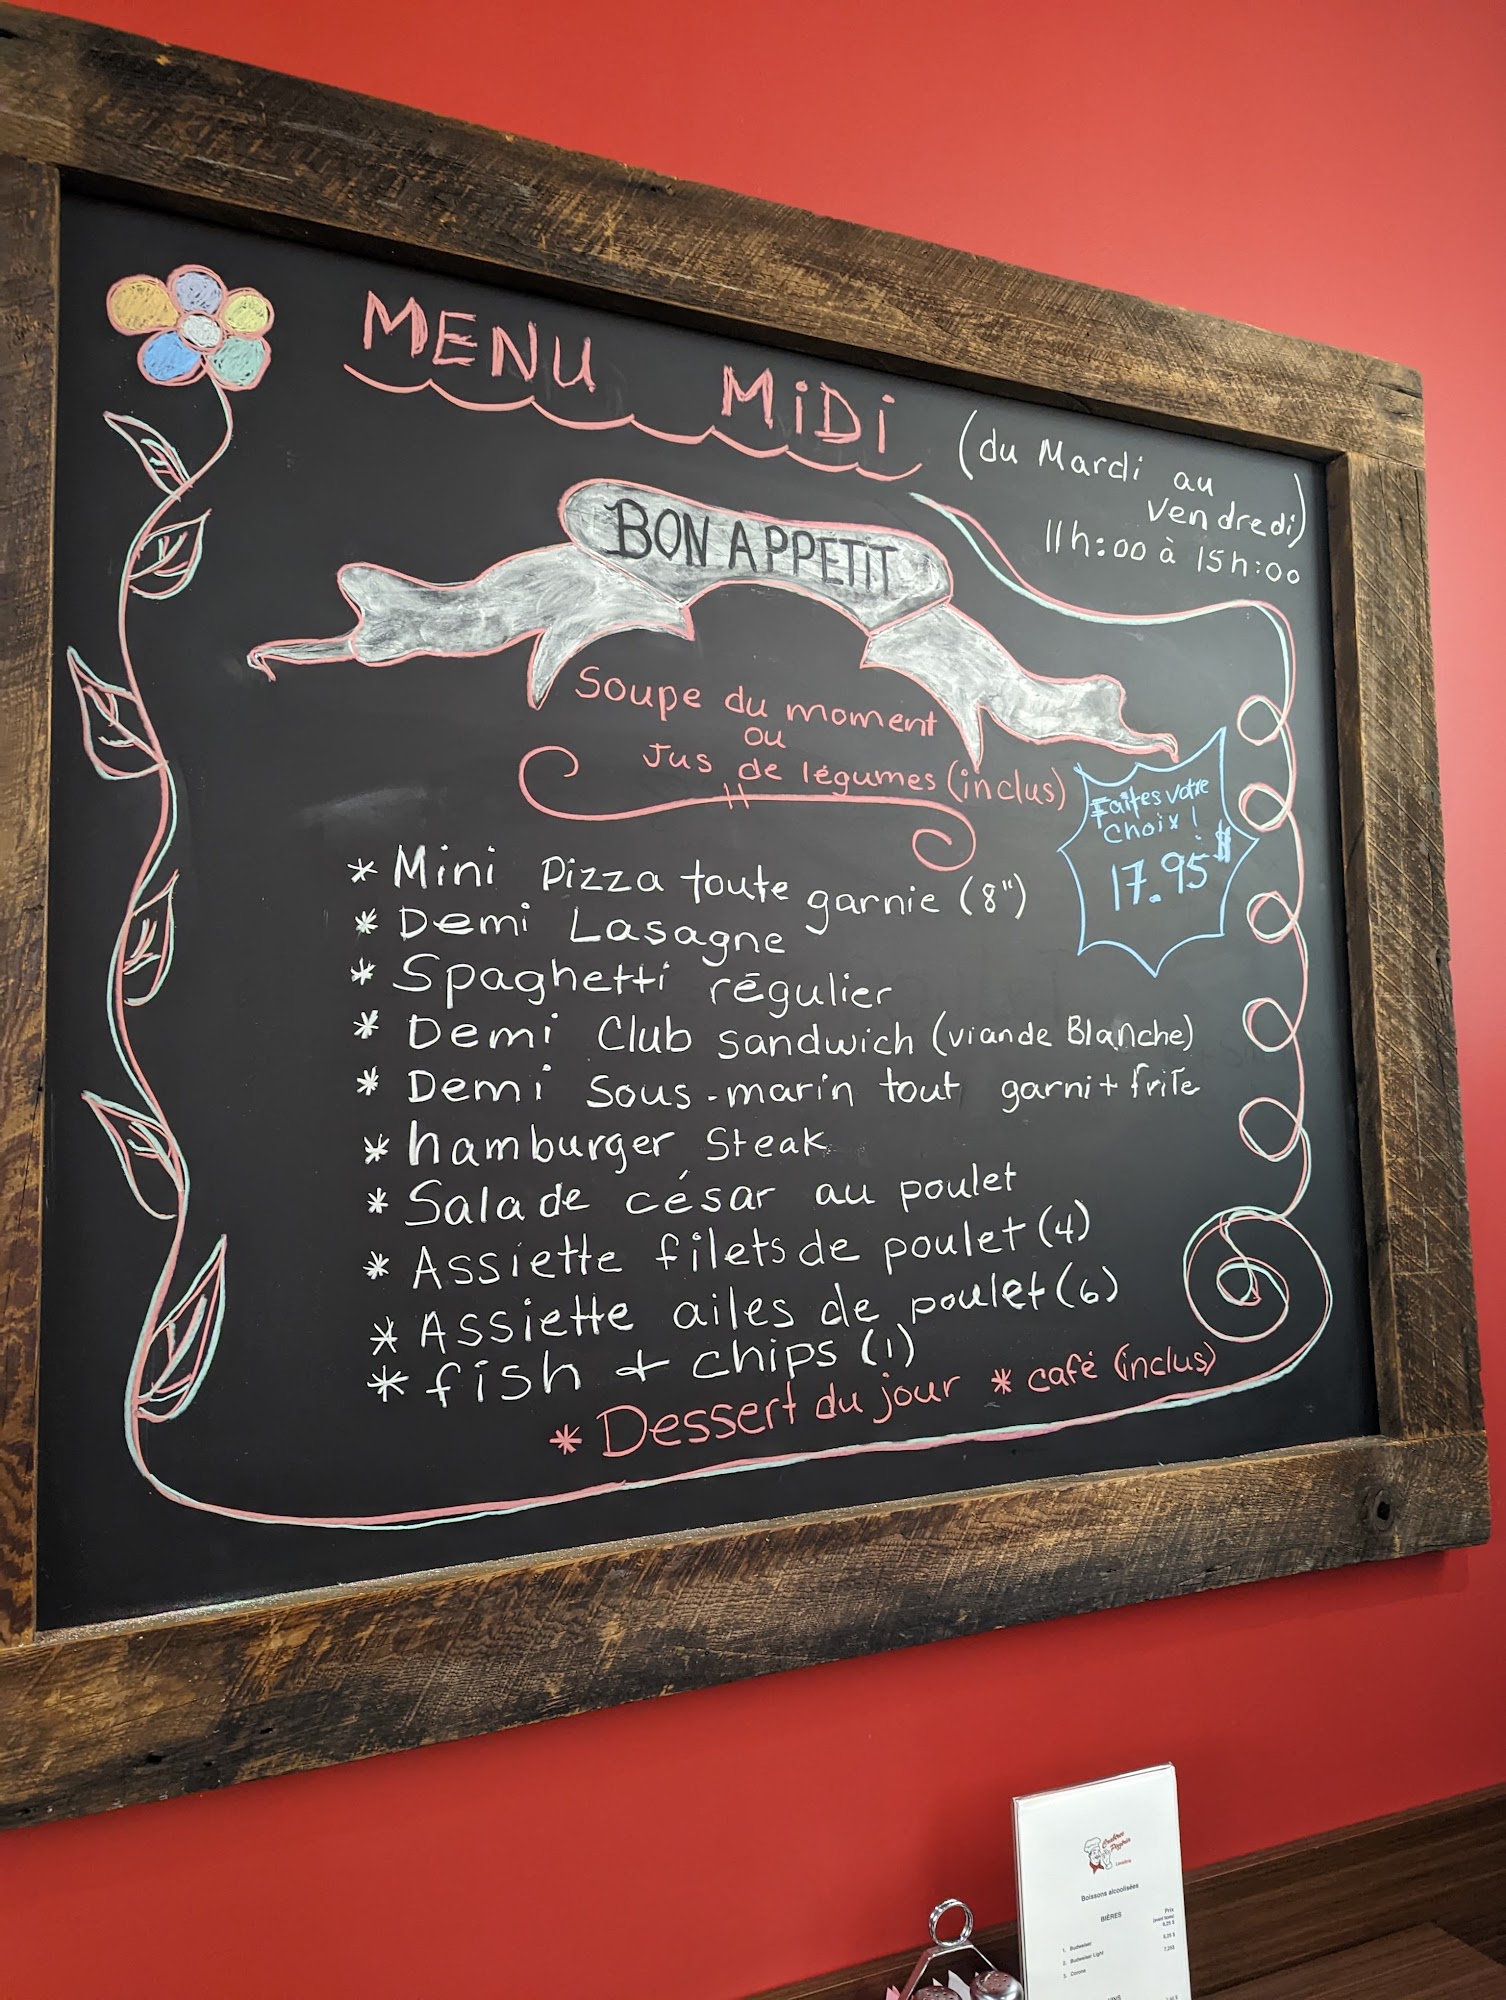 MENU MiDi
(du Mardi au
vendredi)
11h:00 à 15h:00
BON APPETIT
Soupe du moment
ou
Jus de légumes (inclus)
Faites votre
choix !
17.95$
* Mini Pizza toute garnie (8")
* Demi Lasagne
* Spaghetti régulier
* Demi Club sandwich (viande Blanche)
* Demi sous-marin tout garni + frite
* hamburger steak
* Salade césar au poulet
* Assiette filets de poulet (4)
* Assiette ailes de poulet (6)
* fish + chips (1)
* Dessert du jour * café (inclus)
Pizzéria
Boissons alcoolisées
BIÈRES
Prix
1. Budweiser
2. Budweiser Light
3. Corona